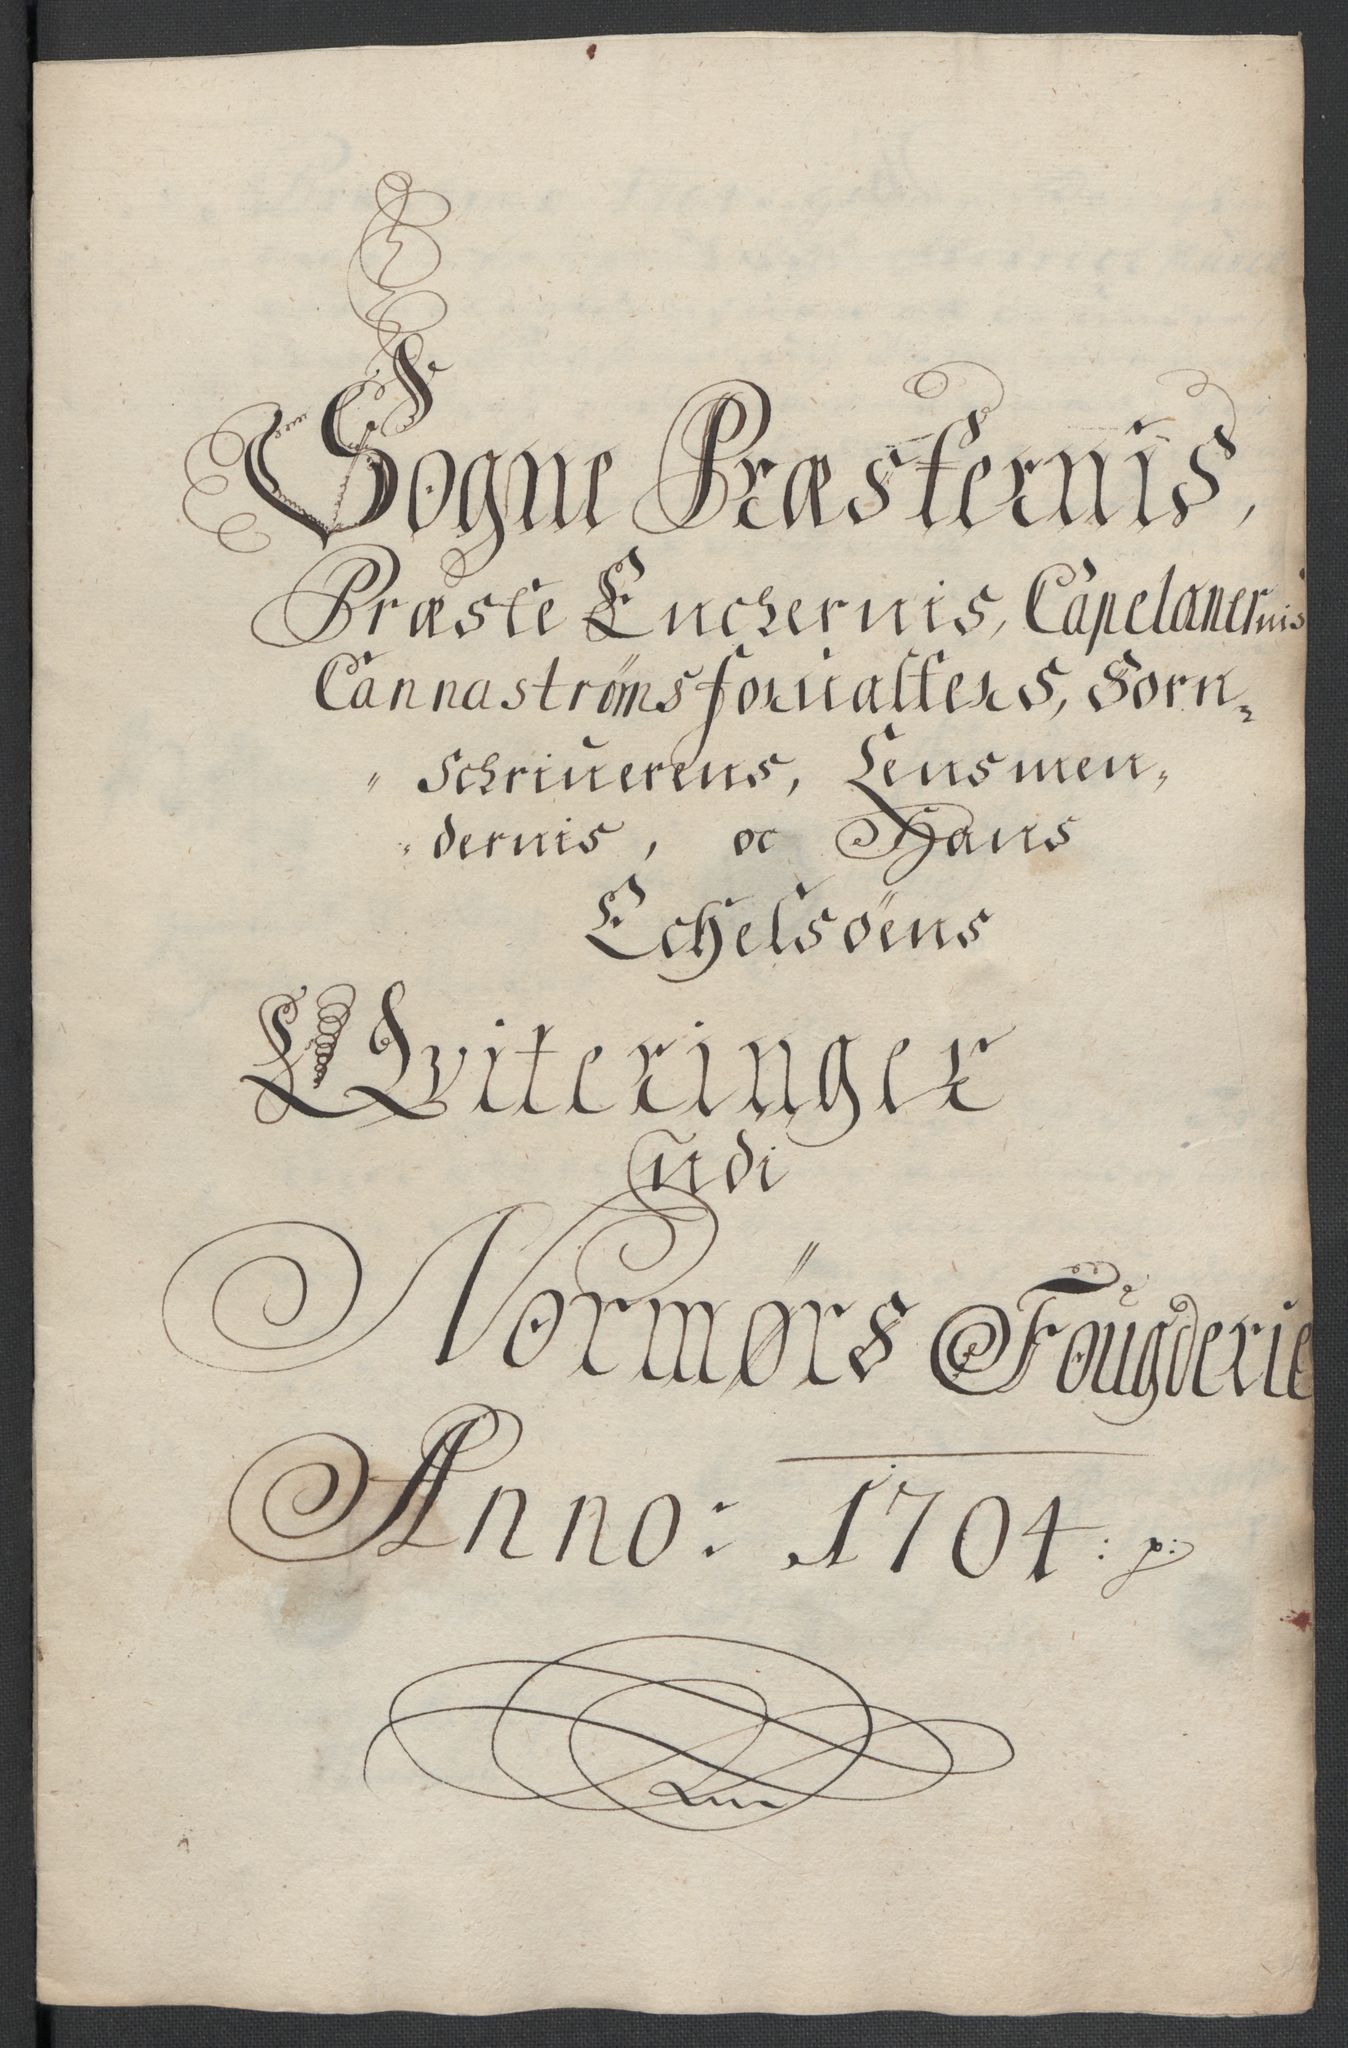 Sogne Præsternis,
Præste Enchernis, Capelanernis
Cannastrøms foruallters, Sorn-
Schriuerens, Lensmen-
dernis, oc Hans
Echelsøens
Qviteringer
udi
Normørs Fougderie
Anno: 1704: p: